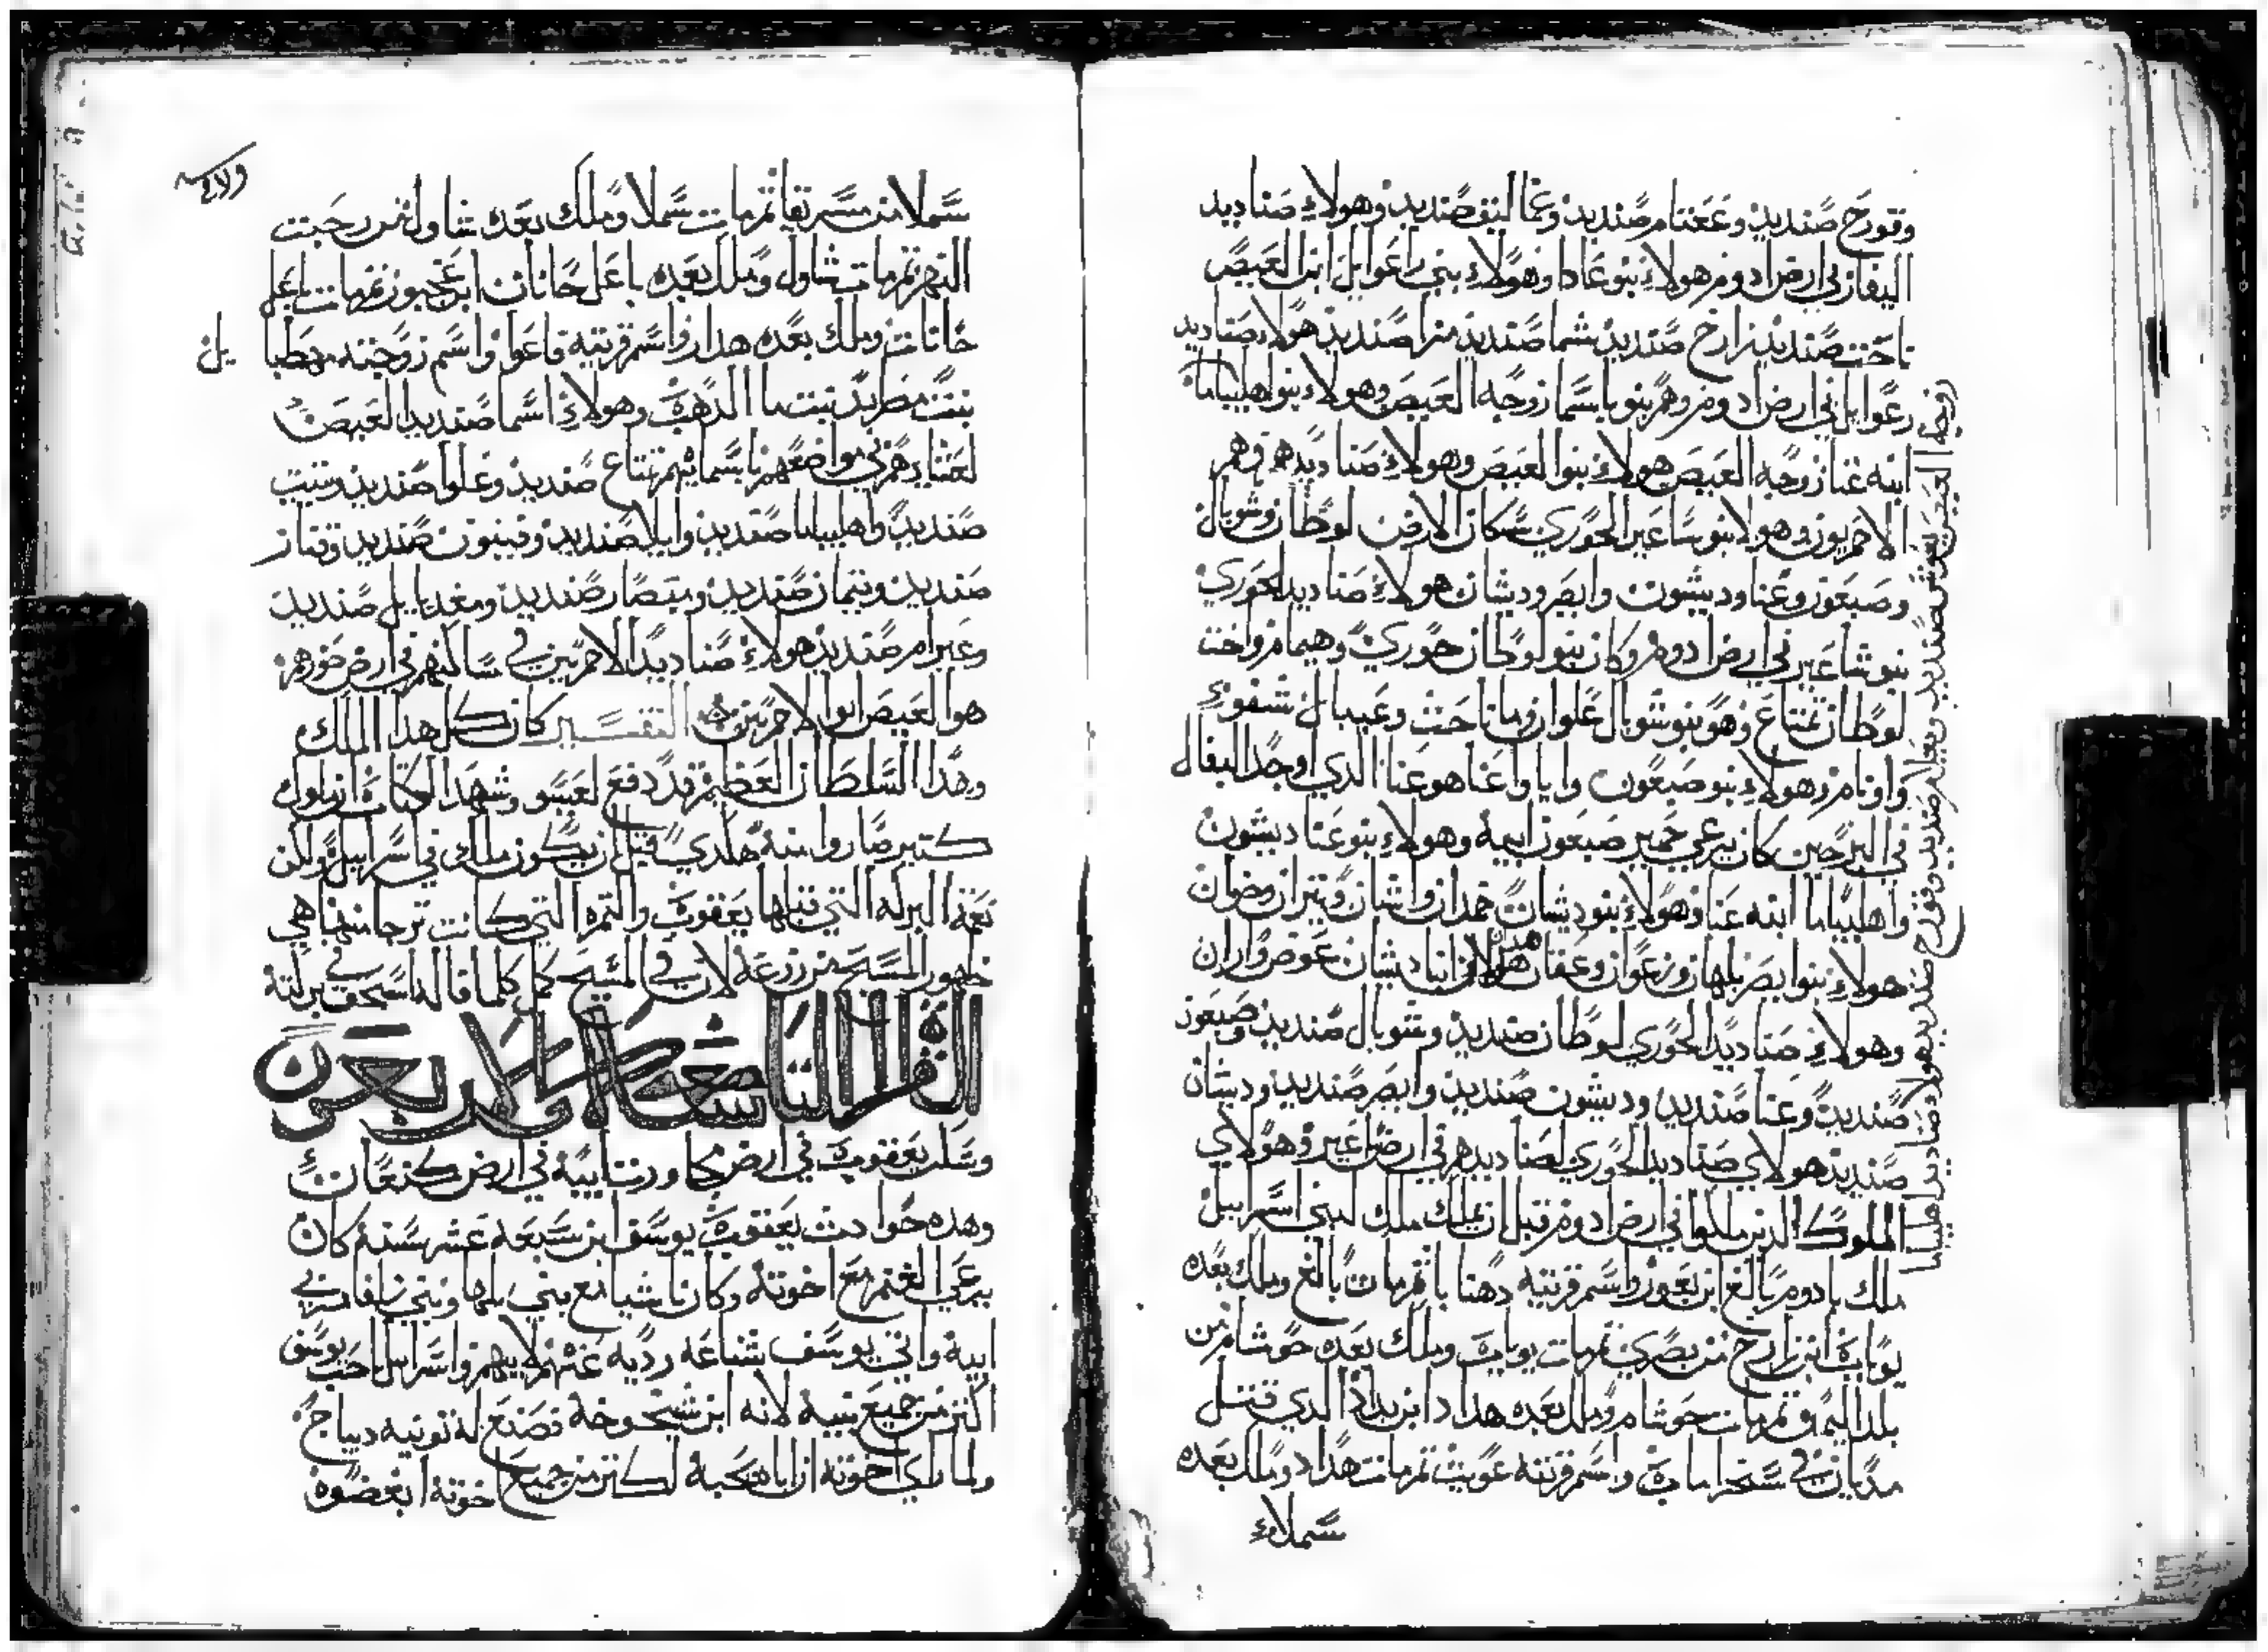 وقورح صنديد وععتام صنديد وعماليق صنديد وهولاء صناديد
اليفاز في ارض ادوم هولاء بنو عادا وهولاء بني راعوايل ابن العيص
ناحت صنديد زارح صنديد شما صنديد مزا صنديد هولاء صناديد
رعوايل في ارض ادوم وهم بنو باسما زوجة العيص وهولاء بنو اهليباما
ابنه عنا زوجه العيص هولاء بنوا العيص وهولاء صناديدهم وهم
الاحمريون وهولا بنو ساعير الحوري سكان الارض لوطان وشوبال
وصبعون وعنا وديشون وابصر وديشان هولاء صناديد الحوري
بنو شاعير في ارض ادوم وكان بنو لوطان حوري وهيمام واخت
لوطان تمناع وهو بنو شوبال علوان وماناحت وعيبال شفو
واونام وهولاء بنو صبعون وايا وعنا هو عنا الدي اوجد البغال
في البر حين كان يرعي حمير صبعون ابيه وهولاء بنو عنا ديشون
واهليباما ابنه عنا وهولاء بنو ديشان حمدان واشبان ويتران
هولاء بنوا بصر بلهان وزعوان وعقان ابنا ديشان عوض واران
وهولاء صناديد الحوري لوطان صنديد وشوبال صنديد وصبعون
صنديد وعنا صنديد وديشون صنديد وابصر صنديد وديشان
صنديد هولاي صناديد الحوري لصناديدهم في ارض ساعير وهولاي
الملوك الدين ملكوا في ارض ادوم قبل ان يملك ملك لبني اسرابيل
ملك بادوم بالع ابن بعور واسم قريته دهنابا ثم مات بالع وملك بعده
يوباب ابن زارح من بصري ثم مات يوباب وملك بعده حوشام من
بلد اليمن ثم مات حوشام وملك بعده هداد ابن بداد الدي قتل
مديان في واسم قريته عويت ثم مات هداد وملك بعده
سملاء
زوجة العيص يعوش صنديد ويعلام صنديد وقورح صنديد هولا صناديد اهليباما
سملا من مسريقا ثم مات سملا وملك بعده شاول من رحبت
النهر ثم مات شاول وملك بعده باعل حانان ابن عخبور ثم مات باعل
حانان وملك بعده هدار واسم قريته فاعوا واسم زوجته مهطبا
يل
بنت مطريد بنت ما الدهب وهولاء اسما صناديد العيص
في مواضعهم باسمايهم تمناع صنديد وعلوا صنديد ويتيت
صنديد واهليباما صنديد وايلا صنديد وفينون صنديد وقناز
صنديد وتيمان صنديد ومبصار صنديد ومغديايل صنديد
وعيرام صنديد هولاء صناديد الاحمريين في مساكنهم في ارض حورهم
هوا العيص ابوا الاحمريين التفسير كان كل هدا الملك
وهدا السلطان العظيم قد دفع لعيسو وشهد الكتاب ان ملوك
كتير صاروا قبل ان يكون ملك في اسرابيل ولكن
نعمة البركه التي قبلها يعقوب والتمره التي كانت ترجا منها هي
ظهور المسيح من زرعه لان في المسيح كمل كلما قاله اسحق في بركته
الفصل التاسع والاربعون
وسكن يعقوب في ارض ابيه في ارض كنعان
وهده حوادت يعقوب يوسف ابن سبعه عشر سنة كان
يرعي الغنم مع اخوته وكان ناشيا مع بني بلها وبني زلفا
ابيه واتي يوسف شناعه رديه عنهم لابيهم واسرايل احب يوسف
اكتر من جميع بنيه لانه ابن شيخوخه فصنع له تونيه ديباج
ولما راي اخوته ان اباه يحبه اكتر من جميع اخوته ابغضوه